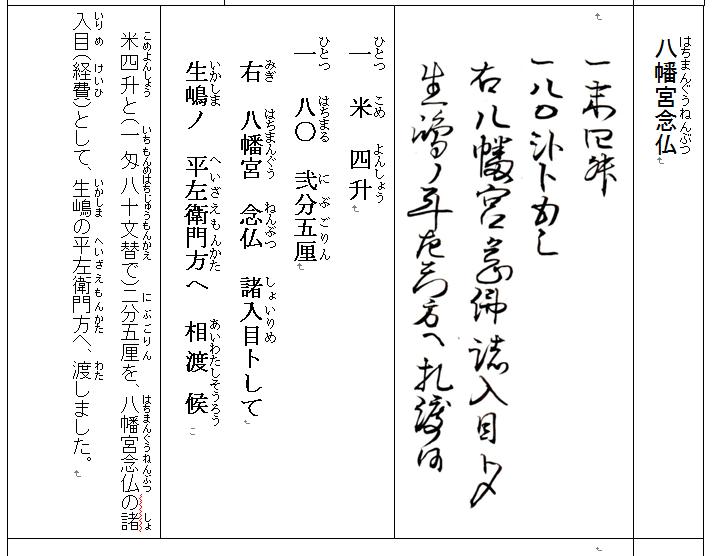 八幡宮念仏
はちまんぐうねんぶつ
一 米 四升
一 八〇
右 八幡宮 念佛 諸入目トメ
生嶋ノ 平左衛門方へ 相渡候
一 米 四升
ひとつ こめ よんしょう
一 八〇 弐分五厘
ひとつ はちまる にぶごりん
右 八幡宮 念仏 諸入目トして
みぎ はちまんぐう ねんぶつ しょいりめ
生嶋ノ 平左衛門方へ 相渡候
いかしま へいざえもんかた あいわたしそうろう
米四升と(一匁八十文替で)二分五厘を、八幡宮念仏の諸
こめよんしょう いちもんめはちじゅうもんかえ にぶごりん はちまんぐうねんぶつ しょ
入目(経費)として、生嶋の平左衛門方へ、渡しました。
いりめ けいひ いかしま へいざえもんかた わた